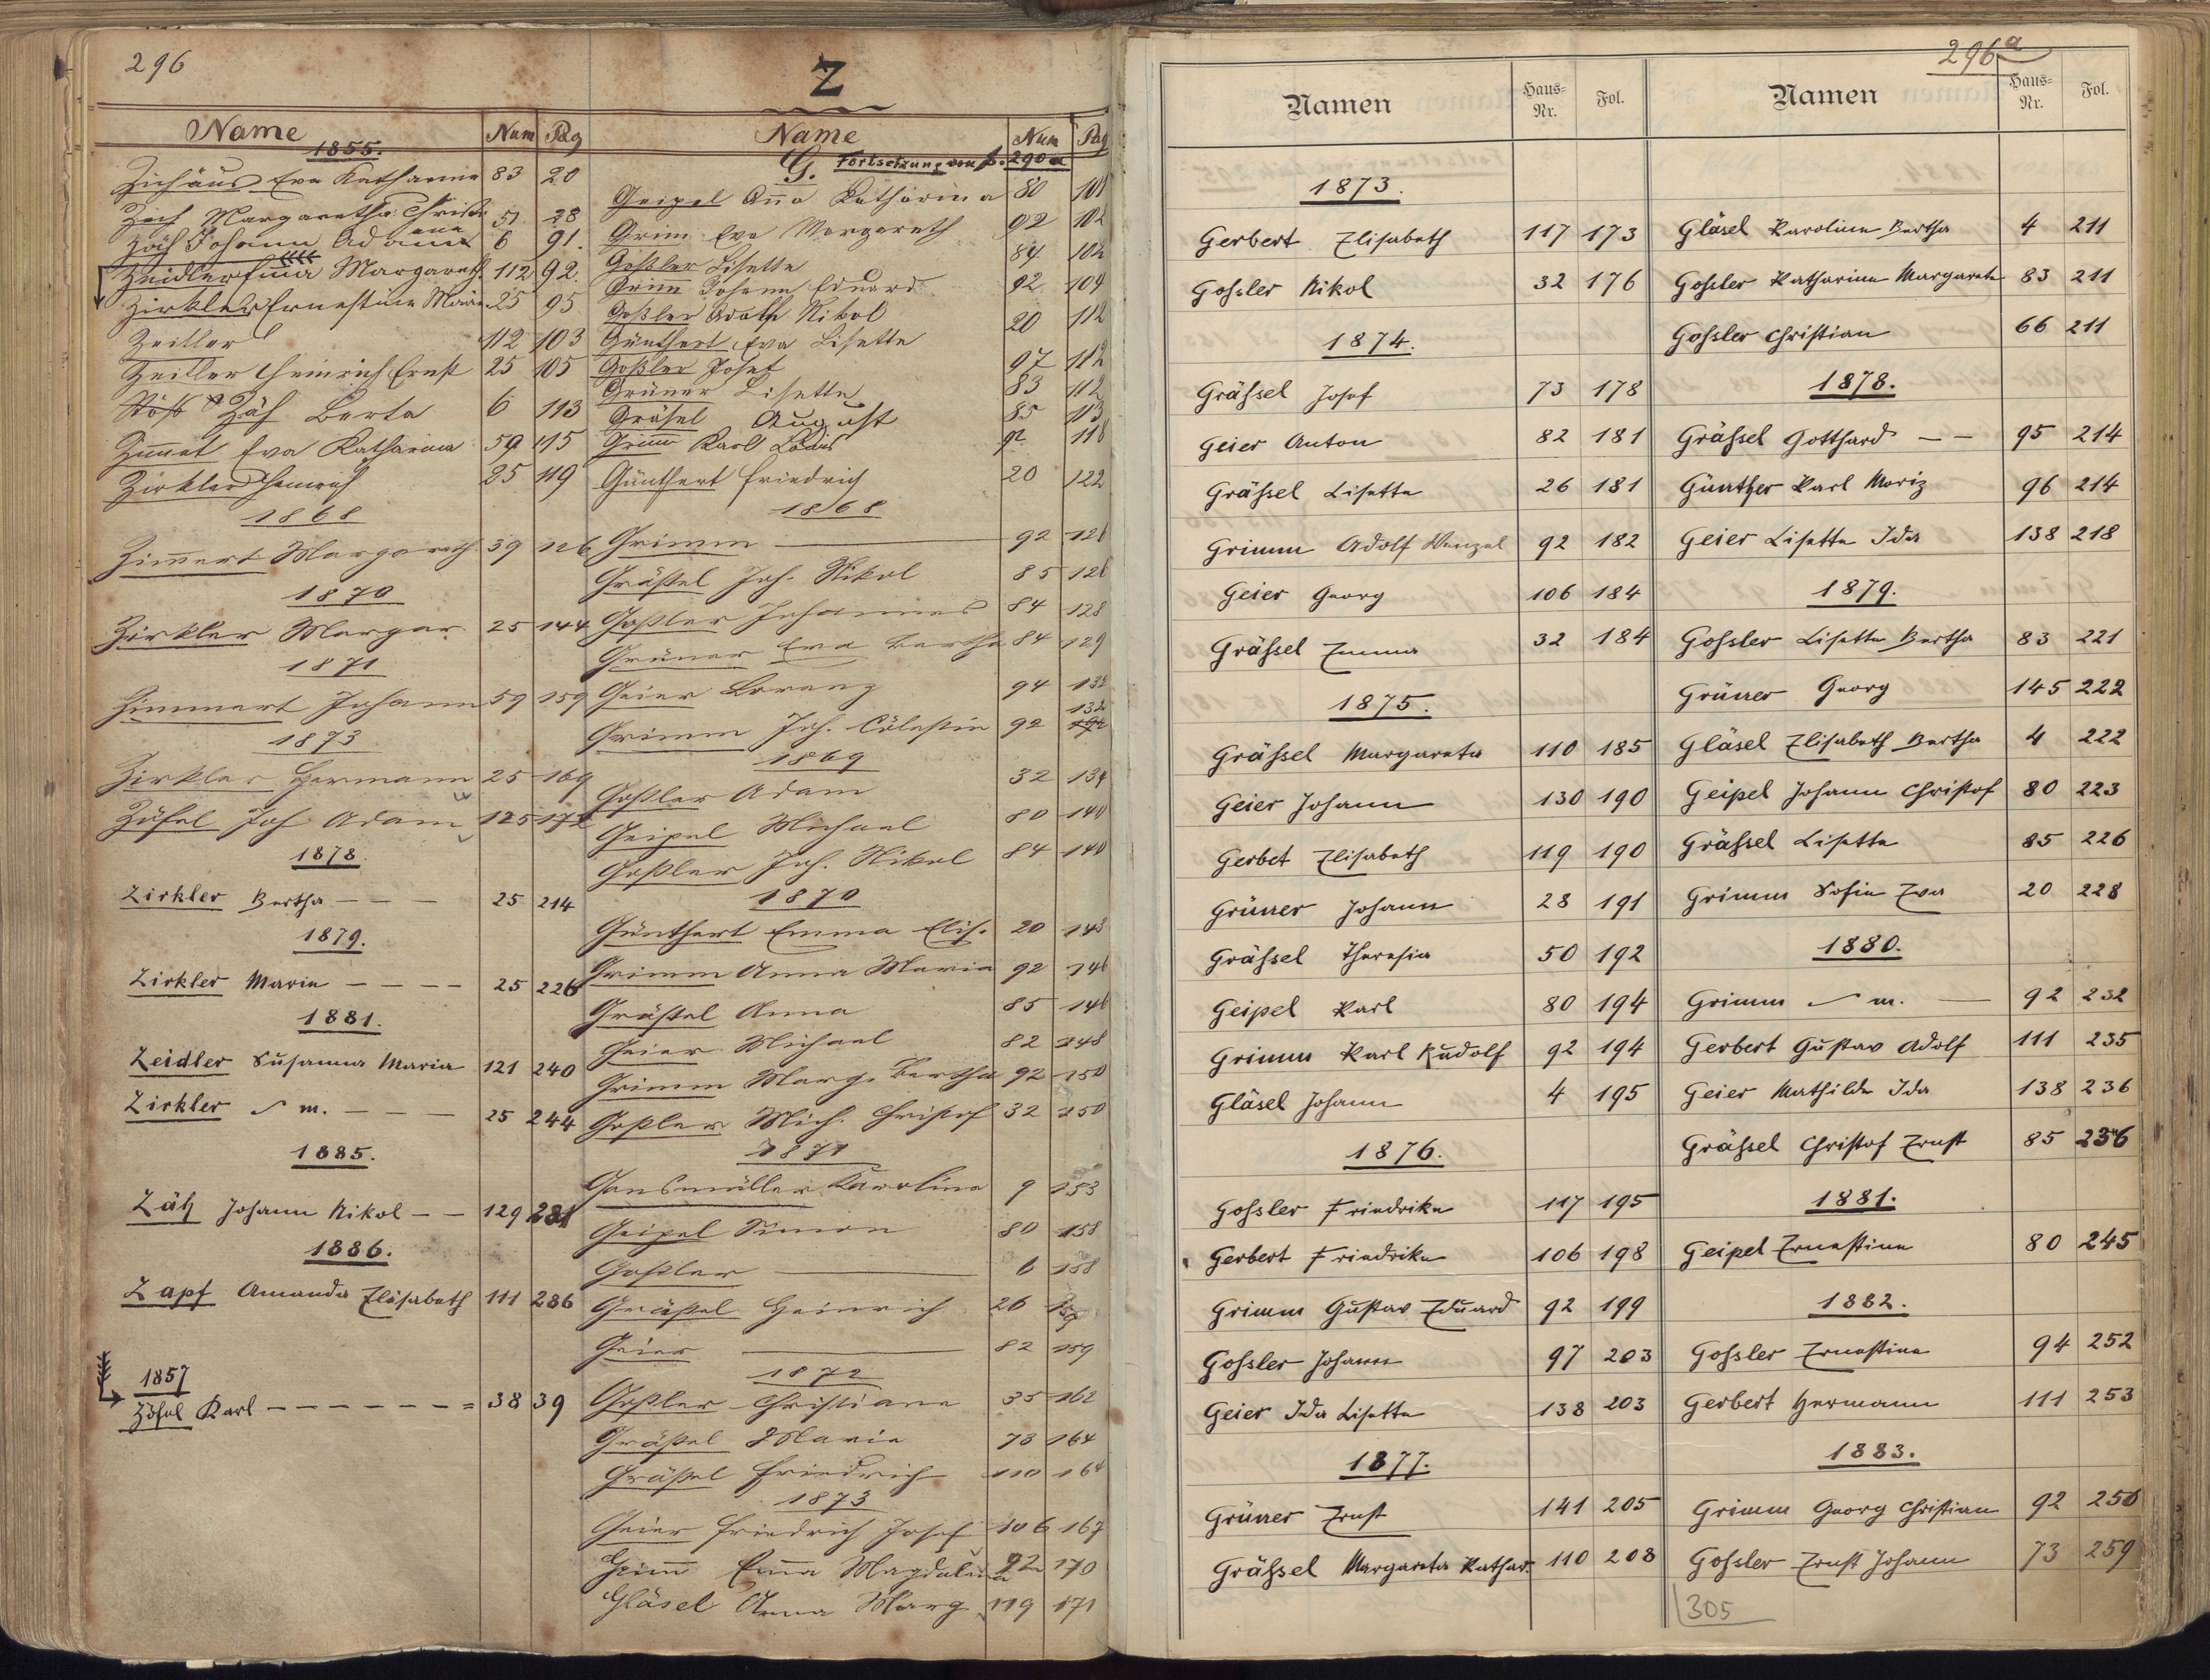 296
Z
Name Num Pag
1855.
Eva Katharina 83 20
Zäh Margaretha Christi
ana 51 28
Zäh Johann Adam 6 91.
Zeidler Margareth. 112 92.
Zirkler Ernestine Marie 25 95
Zeitler 112 103
Zeitler Heinrich Ernst 25 105
Zäh Berta 6 113
Eva Katharina 59 115
Zirkler Heinrich 25 119
1868
Zim̅ert Margareth. 39 126
1870
Zirkler Margar. 25 144
1871
Zimmert Johann 59 159
1873
Zirkler Hermann 25 169
Zöfel Joh. Adam 125 172
1878.
Zirkler Bertha – – – 25 214
1879.
Zirkler Marie – – – – 25 226
1881.
Zeidler Susanna Maria 121 240
Zirkler m. – – – 25 244
1885.
Zäh Johann Nikol – – 129 281
1886.
Zapf Amanda Elisabeth 111 286
1857
Zöfel Karl – – – – – – = 38 39
Name Num Pag
G. Fortsetzung von S. 290a
Geipel Ana Katharina 80 101
Grim Eva Margareth 92 102
Goßler Lisette 84 102
Grim Johann Eduard 92 109
Goßler Adolf Nikol 20 112
Günthert Eva Lisette
Goßler Josef 97 112
Grüner Lisette 83 112
Gräsel August 85 113
Grim Karl 92 118
Günthert Friedrich 20 122
1868
Grimm 92 126
Gräßel Joh. Nikol 85 126
Goßler Johannes 84 128
Grüner Eva Bertha 84 129
Geier Lorenz 94 132
Grimm Joh. Cölestin 92 132
1869
Goßler Adam 32 134
Geipel Michael 80 140
Goßler Joh. Nikol 84 140
1870
Günthert Emma Elis. 20 143
Grimm Anna Maria 92 146
Gräßel Anna 85 146
Geier Michael 82 148
Grimm Marg. Bertha 92 150
Goßler Mich. Christof 32 150
1871
Gensmüller Karolina 9 153
Geipel Simon 80 158
Goßler 6 158
Gräßel Heinrich 26 159
Geier 82 159
1872
Goßler Christiane 35 162
Gräßel Maria 73 164
Gräßel Friedrich 110 164
1873
Geier Friedrich Josef 106 167
Grim̅ Em̅a Magdalena 92 170
Gläsel Anna Marg 119 171
296a
Namen Haus-Nr. Fol.
1873.
Gerbert Elisabeth 117 173
Goßler Nikol 32 176
1874.
Gräßel Josef 73 178
Geier Anton 82 181
Gräßel Lisette 26 181
Grimm Adolf Wenzel 92 182
Geier Georg 106 184
Gräßel Emma 32 184
1875.
Gräßel Margareta 110 185
Geier Johann 130 190
Gerbet Elisabeth 119 190
Grüner Johann 28 191
Gräßel Theresia 50 192
Geipel Karl 80 194
Grimm Karl Rudolf 92 194
Gläsel Johann 4 195
1876.
Goßler Friedrike 117 195
Gerbert Friedrike 106 198
Grimm Gustav Eduard 92 199
Goßler Johann 97 203
Geier Ida Lisette 138 203
1877.
Grüner Ernst 141 205
Gräßel Margareta Kathar. 110 208
Namen Haus-Nr. Fol.
Gläsel Karoline Bertha 4 211
Goßler Katharina Margareta 83 211
Goßler Christian 66 211
1878.
Gräßel Gotthard – – 95 214
Günther Karl Moriz 96 214
Geier Lisette Ida 138 218
1879.
Goßler Lisette Bertha 83 221
Grüner Georg 145 222
Gläsel Elisabeth Bertha 4 222
Geipel Johann Christof 80 223
Gräßel Lisette 85 226
Grimm Sofie Eva 20 228
1880.
Grimm m. — 92 232
Gerbert Gustav Adolf 111 235
Geier Mathilde Ida 138 236
Gräßel Christof Ernst 85 236
1881.
Geipel Ernestine 80 245
1882.
Goßler Ernestine 94 252
Gerbert Hermann 111 253
1883.
Grimm Georg Christian 92 256
Goßler Ernst Johann 73 259
305